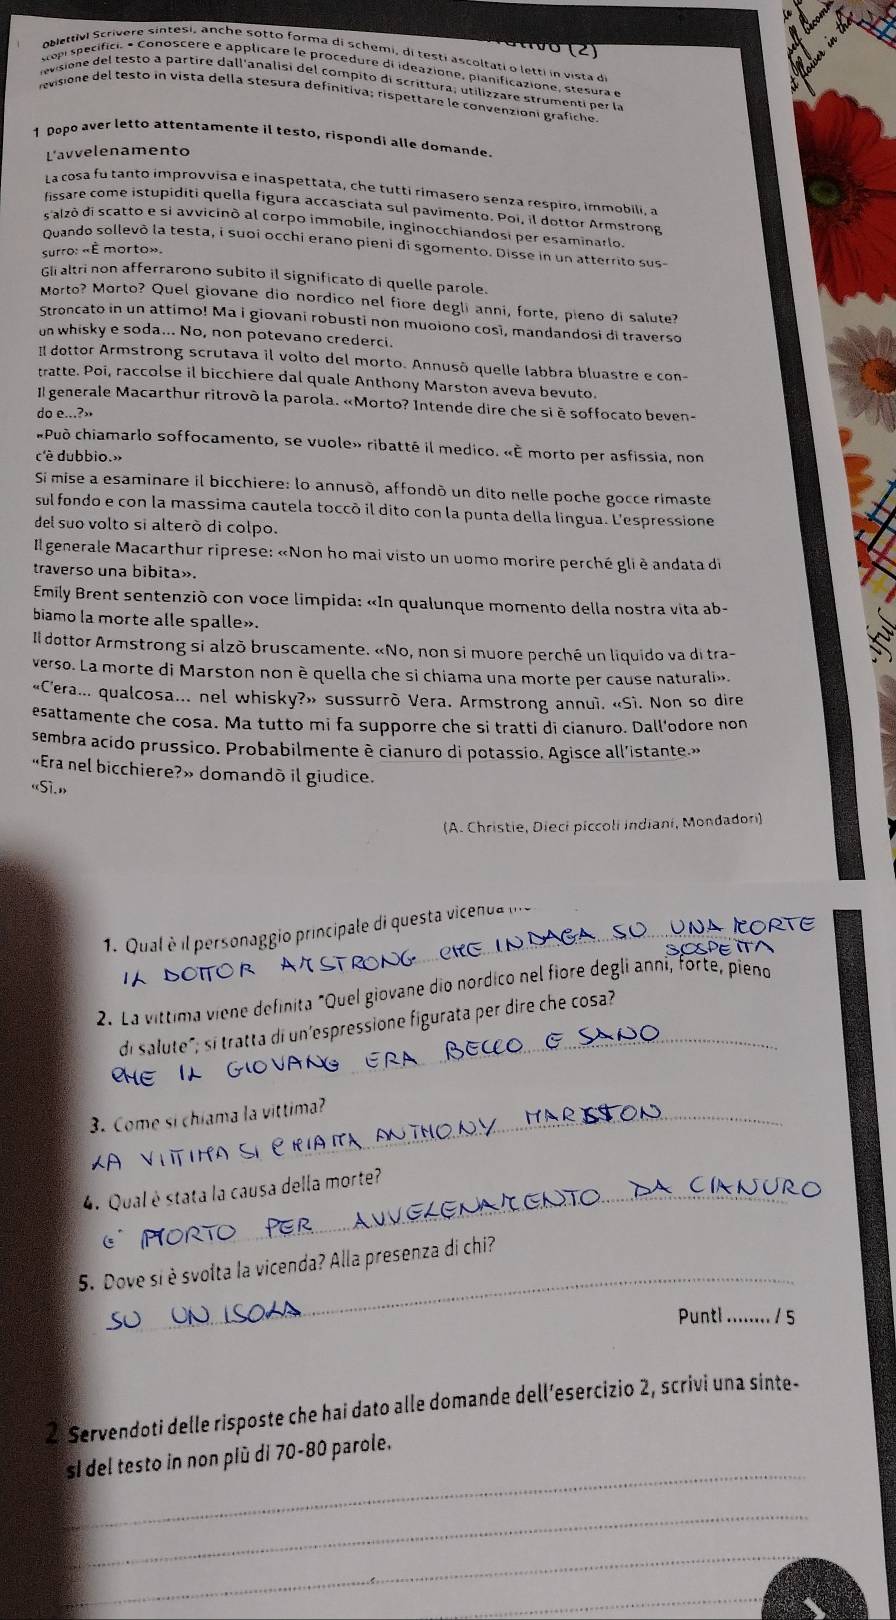 (2)
Obiettivi Scrivere sintesi, anche sotto forma di schemi, di testi ascoltati o letti in vista di
scopi specifici. • Conoscere e applicare le procedure di ideazione, pianificazione, stesura e
revisione del testo a partire dall'analisi del compito di scrittura; utilizzare strumenti per la
revisione del testo in vista della stesura definitiva; rispettare le convenzioni grafiche.
1 Dopo aver letto attentamente il testo, rispondi alle domande.
L'avvelenamento
La cosa fu tanto improvvisa e inaspettata, che tutti rimasero senza respiro, immobili, a
fissare come istupiditi quella figura accasciata sul pavimento. Poi, il dottor Armstrong
s'alzò di scatto e si avvicinò al corpo immobile, inginocchiandosi per esaminarlo.
Quando sollevò la testa, i suoi occhi erano pieni di sgomento. Disse in un atterrito sus-
surro: «È morto».
Gli altri non afferrarono subito il significato di quelle parole.
Morto? Morto? Quel giovane dio nordico nel fiore degli anni, forte, pieno di salute?
Stroncato in un attimo! Ma i giovani robusti non muoiono così, mandandosi di traverso
un whisky e soda... No, non potevano crederci.
Il dottor Armstrong scrutava il volto del morto. Annusò quelle labbra bluastre e con-
tratte. Poi, raccolse il bicchiere dal quale Anthony Marston aveva bevuto.
Il generale Macarthur ritrovò la parola. «Morto? Intende dire che si è soffocato beven-
do e...?»
«Può chiamarlo soffocamento, se vuole» ribatté il medico. «È morto per asfissia, non
c'è dubbio.»
Si mise a esaminare il bicchiere: lo annusò, affondò un dito nelle poche gocce rimaste
sul fondo e con la massima cautela toccò il dito con la punta della lingua. L'espressione
del suo volto si alterò di colpo.
Il generale Macarthur riprese: «Non ho mai visto un uomo morire perché gli è andata di
traverso una bibita».
Emily Brent sentenziò con voce limpida: «In qualunque momento della nostra vita ab-
biamo la morte alle spalle».
Il dottor Armstrong si alzò bruscamente. «No, non si muore perché un liquido va di tra-
verso. La morte di Marston non è quella che si chiama una morte per cause naturali».
«C'era... qualcosa... nel whisky?» sussurrò Vera. Armstrong annuì. «Sì. Non so dire
esattamente che cosa. Ma tutto mi fa supporre che si tratti di cianuro. Dall'odore non
sembra acido prussico. Probabilmente è cianuro di potassio. Agisce all'istante.»
«Era nel bicchiere?» domandò il giudice.
«Sì.»
(A. Christie, Dieci piccoli indiani, Mondadori)
1. Qual è il personaggio principale di questa vicenda
IL DOTTOR ARSTRONG CHE INDAGA SU UNA MORTE
SOSPETTA
2. La vittima viene definita "Quel giovane dio nordico nel fiore degli anni, forte, pieno
di salute"; si tratta di un'espressione figurata per dire che cosa?
CHE IL GIOVANE ERA BELLO E SANO
3. Come si chiama la vittima?
LA VITTIMA SI CHIAMA ANTHONY MARSTON
4. Qual è stata la causa della morte?
E' MORTO PER AVVELENAMENTO DA CIANURO
5. Dove si è svolta la vicenda? Alla presenza di chi?
SU UN ISOLA
Punti ........ / 5
2 Servendoti delle risposte che hai dato alle domande dell'esercizio 2, scrivi una sinte-
si del testo in non più di 70-80 parole.